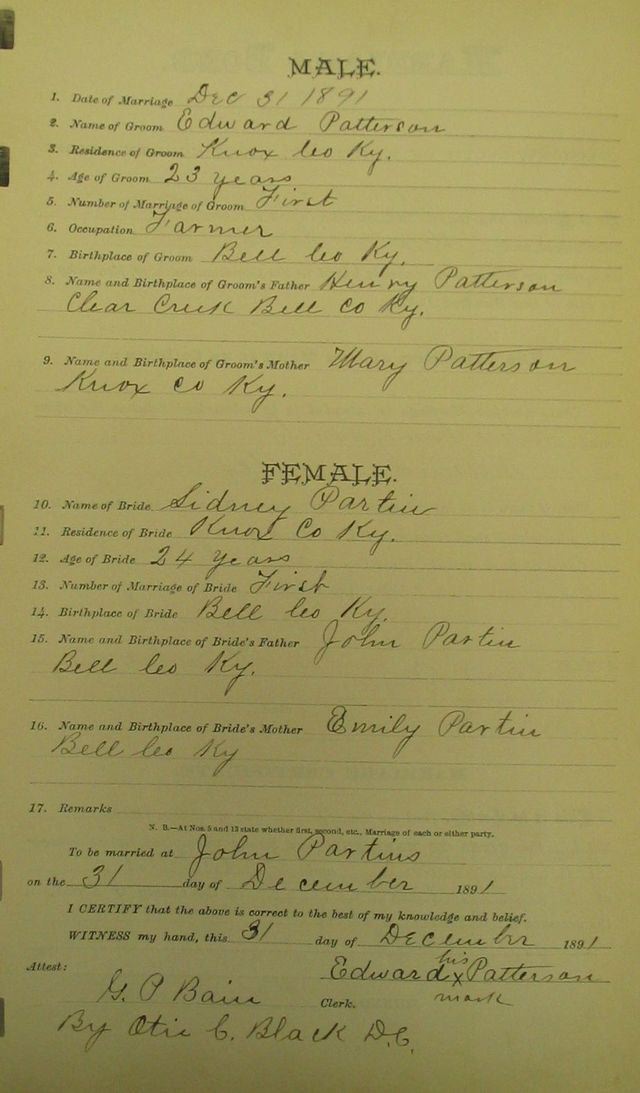 MALE.
1. Date of Marriage Dec 31 1891
2. Name of Groom Edward Patterson
3. Residence of Groom Knox Co Ky.
4. Age of Groom 23 years
5. Number of Marriage of Groom First
6. Occupation Farmer
7. Birthplace of Groom Bell Co Ky.
8. Name and Birthplace of Groom's Father Henry Patterson
Clear Creek Bell Co Ky.
9. Name and Birthplace of Groom's Mother Mary Patterson
Knox Co Ky.
FEMALE.
10. Name of Bride Sidney Partin
11. Residence of Bride Knox Co Ky.
12. Age of Bride 24 years
13. Number of Marriage of Bride First
14. Birthplace of Bride Bell Co Ky.
15. Name and Birthplace of Bride's Father John Partin
Bell Co Ky.
16. Name and Birthplace of Bride's Mother Emily Partin
Bell Co Ky
17. Remarks
N. B.—At Nos. 5 and 13 state whether first, second, etc., Marriage of each or either party.
To be married at John Partins
on the 31 day of December 1891
I CERTIFY that the above is correct to the best of my knowledge and belief.
WITNESS my hand, this 31 day of December 1891
his
Attest: Edward x Patterson
mark
G. P Bain Clerk.
By Otis C. Black D.C.